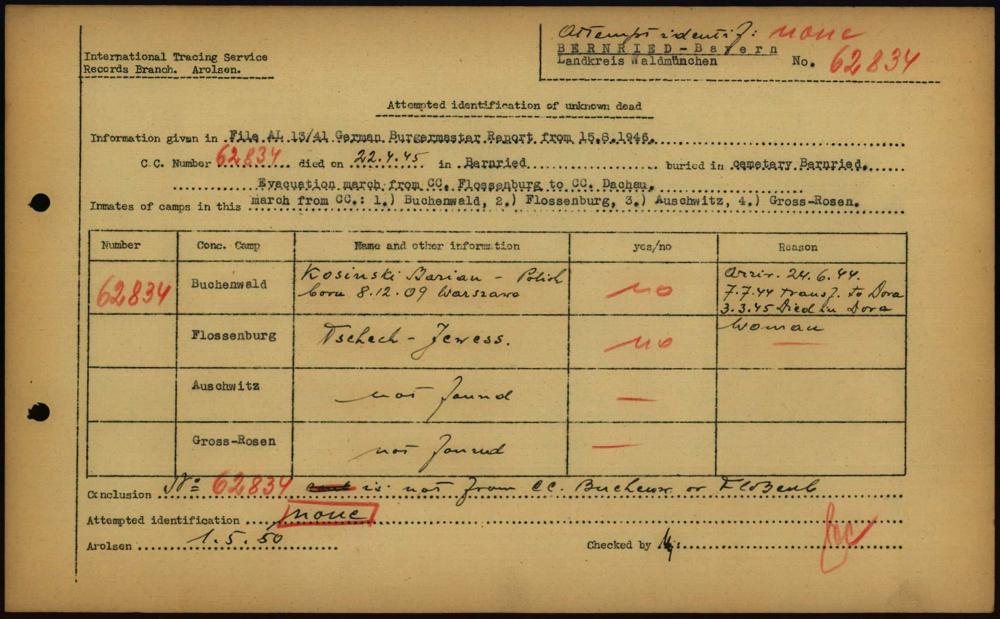 Attempt identif: none
International Tracing Service
Records Branch. Arolsen.
BERNRIED - Bayern
Landkreis Waldmünchen No. 62834
Attempted identification of unknown dead
Information given in File AL 13/41 German Burgermaster Report from 15.8.1946.
C.C. Number 62834 died on 22.4.45 in Bernried buried in cemetary Bernried.
Evacuation march from CC. Flossenburg to CC. Dachau.
Inmates of camps in this march from CC.: 1.) Buchenwald, 2.) Flossenburg, 3.) Auschwitz, 4.) Gross-Rosen.
Number Conc. Camp Name and other information yes/no Reason
62834 Buchenwald Kosinski Marian - Polish born 8.12.09 Warszawa no Arriv. 24.6.44. 7.7.44 transf. to Dora 3.3.45 Died in Dora
Flossenburg Tschech - Jewess. no Woman
Auschwitz not found —
Gross-Rosen not found —
Conclusion No 62834 is not from CC. Buchenw. or Floßenb
Attempted identification none
Arolsen 1.5.50 Checked by